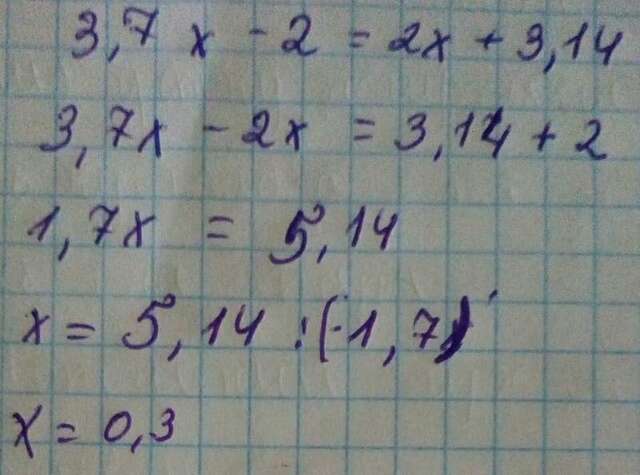 3,7x - 2 = 2x + 3,14
3,7x - 2x = 3,14 + 2
1,7x = 5,14
x = 5,14 : (-1,7)
x = 0,3